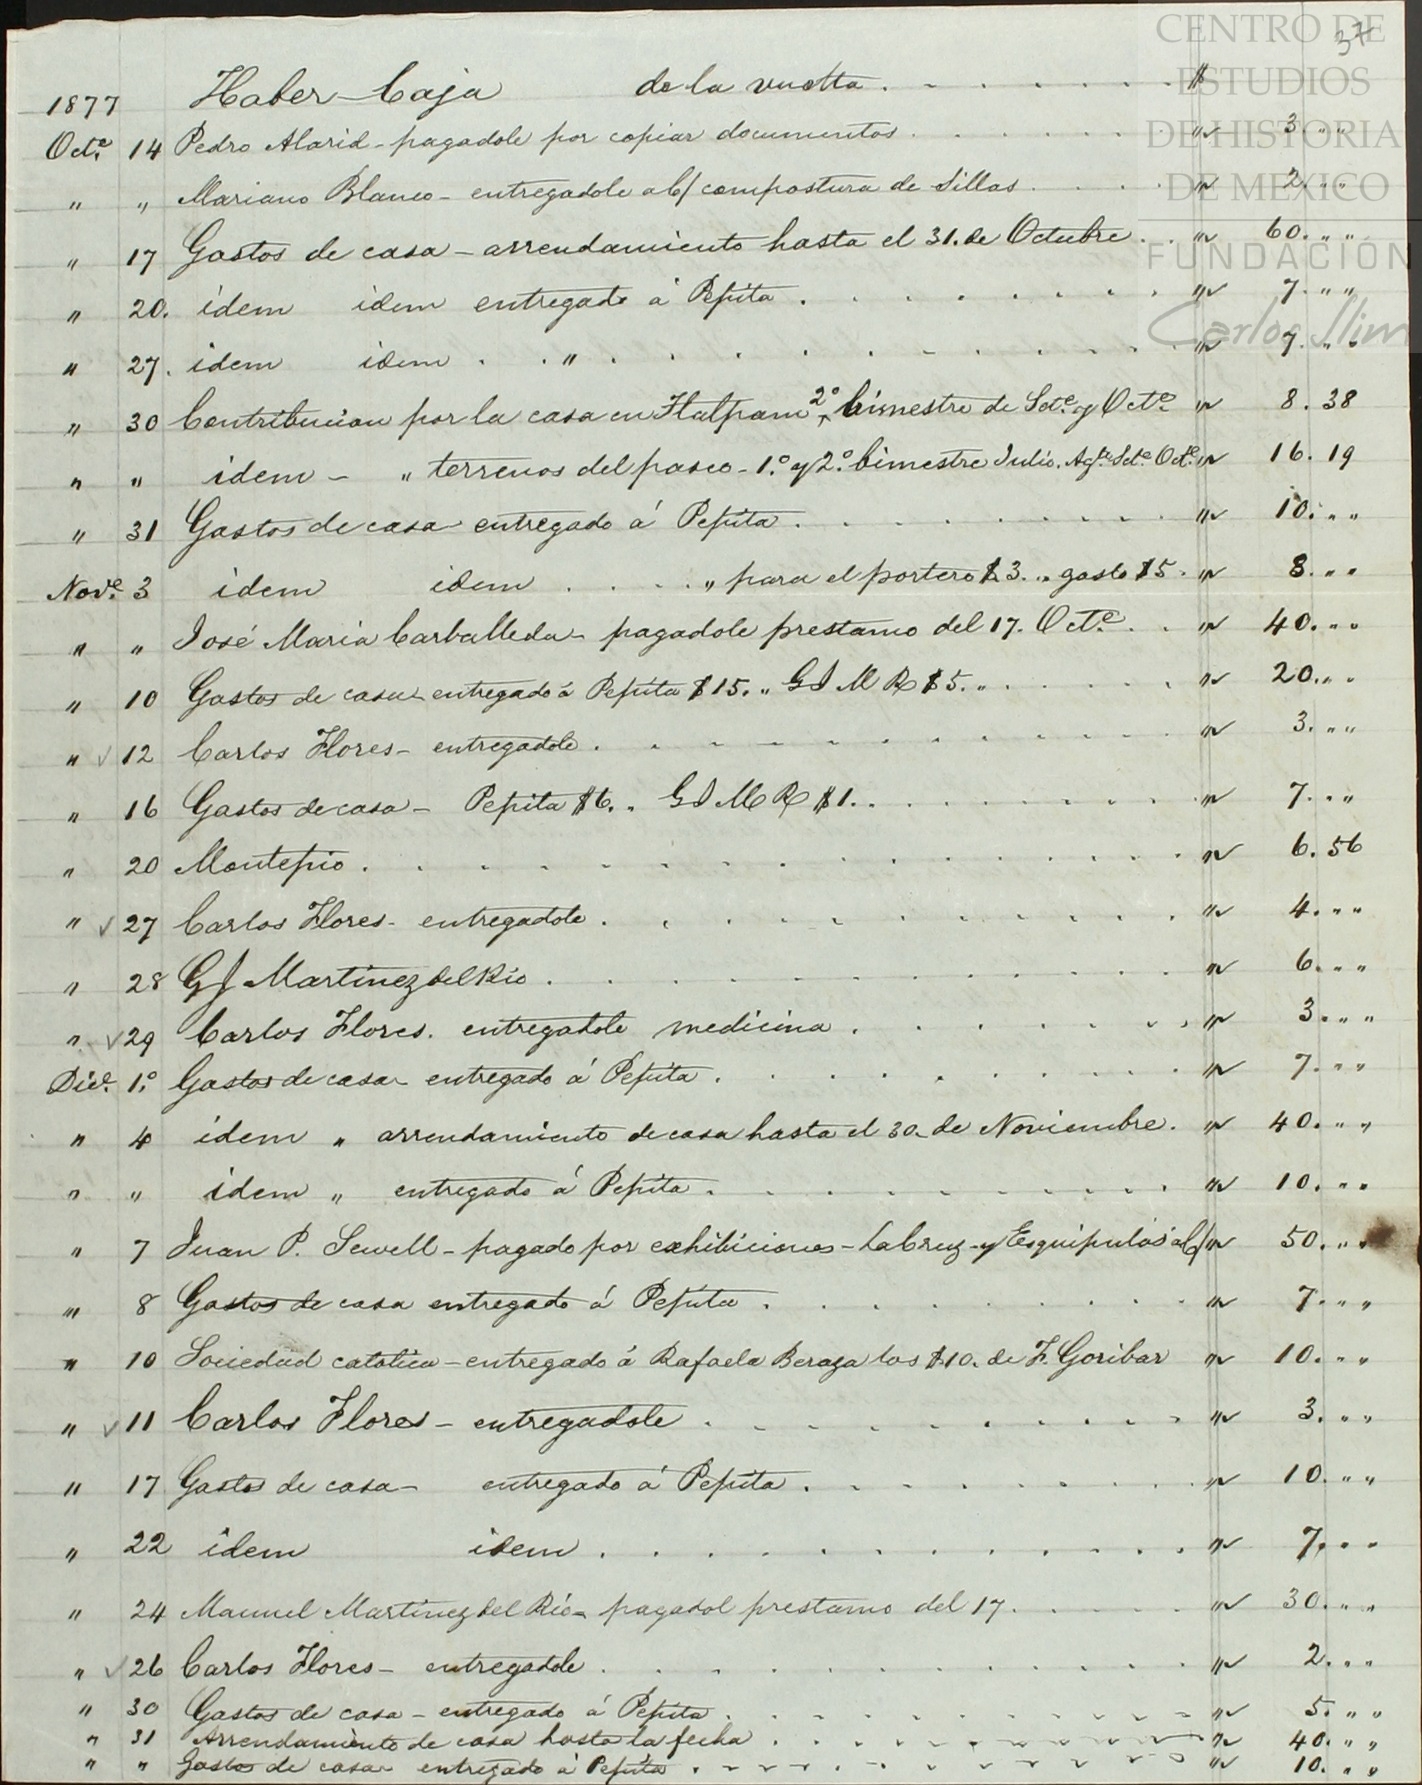 CENTRO DE
ESTUDIOS
DE HISTORIA
DE MEXICO
FUNDACIÓN
Carlos Slim
37
1877 Haber Caja de la vuelta . . . . . . . $
Octe. 14 Pedro Alarid - pagadole por copiar documentos . . . . . . . " 3. " "
" " Mariano Blanco - entregadole a/c/ compostura de Sillas . . . . . " 2. " "
" 17 Gastos de casa - arrendamiento hasta el 31. de Octubre . . " 60. " "
" 20. idem idem entregado á Pepita . . . . . . . . " 7. " "
" 27. idem idem . . " . . . . . . . . . . " 7. " "
" 30 Contribucion por la casa en Tlalpam 2º bimestre de Sete. y Octe. " 8. 38
" " idem - " terrenos del paseo - 1.º y 2.º bimestre Julio. Agto. Sete. Octe. " 16. 19
" 31 Gastos de casa entregado á Pepita . . . . . . . . " 10. " "
Nove. 3 idem idem . . . . " para el portero $3. " gasto $5. " 8. " "
" " José Maria Carballeda - pagadole prestamo del 17. Octe. . . " 40. " "
" 10 Gastos de casa entregado á Pepita $15. " G J M R $5. " . . . . . . " 20. " "
" ✓ 12 Carlos Flores - entregadole . . . . . . . . . . . " 3. " "
" 16 Gastos de casa - Pepita $6. " G J M R $1. " . . . . . . . " 7. " "
" 20 Montepio . . . . . . . . . . . . . . " 6. 56
" ✓ 27 Carlos Flores - entregadole . . . . . . . . . . " 4. " "
" 28 G J Martinez del Rio . . . . . . . . . . . " 6. " "
" ✓ 29 Carlos Flores. entregadole medicina . . . . . . . " 3. " "
Dice. 1.º Gastos de casa entregado á Pepita . . . . . . . . . " 7. " "
" 4 idem " arrendamiento de casa hasta el 30. de Noviembre. " 40. " "
" " idem " entregado á Pepita . . . . . . . . . . " 10. " "
" 7 Juan P. Sewell - pagado por exhibiciones - La Cruz - y Esquipulas a/c/ " 50. " "
" 8 Gastos de casa entregado á Pepita . . . . . . . . . " 7. " "
" 10 Sociedad catolica - entregado á Rafaela Beraza los $10. de F. Goribar " 10. " "
" ✓ 11 Carlos Flores - entregadole . . . . . . . . . . " 3. " "
" 17 Gastos de casa - entregado á Pepita . . . . . . . . " 10. " "
" 22 idem idem . . . . . . . . . . . . . " 7. " "
" 24 Manuel Martinez del Rio - pagadol prestamo del 17 . . . . . " 30. " "
" ✓ 26 Carlos Flores - entregadole . . . . . . . . . . . " 2. " "
" 30 Gastos de casa - entregado á Pepita . . . . . . . . . " 5. " "
" 31 Arrendamiento de casa hasta la fecha . . . . . . . . " 40. " "
" " Gastos de casa entregado á Pepita . . . . . . . . . . " 10. " "